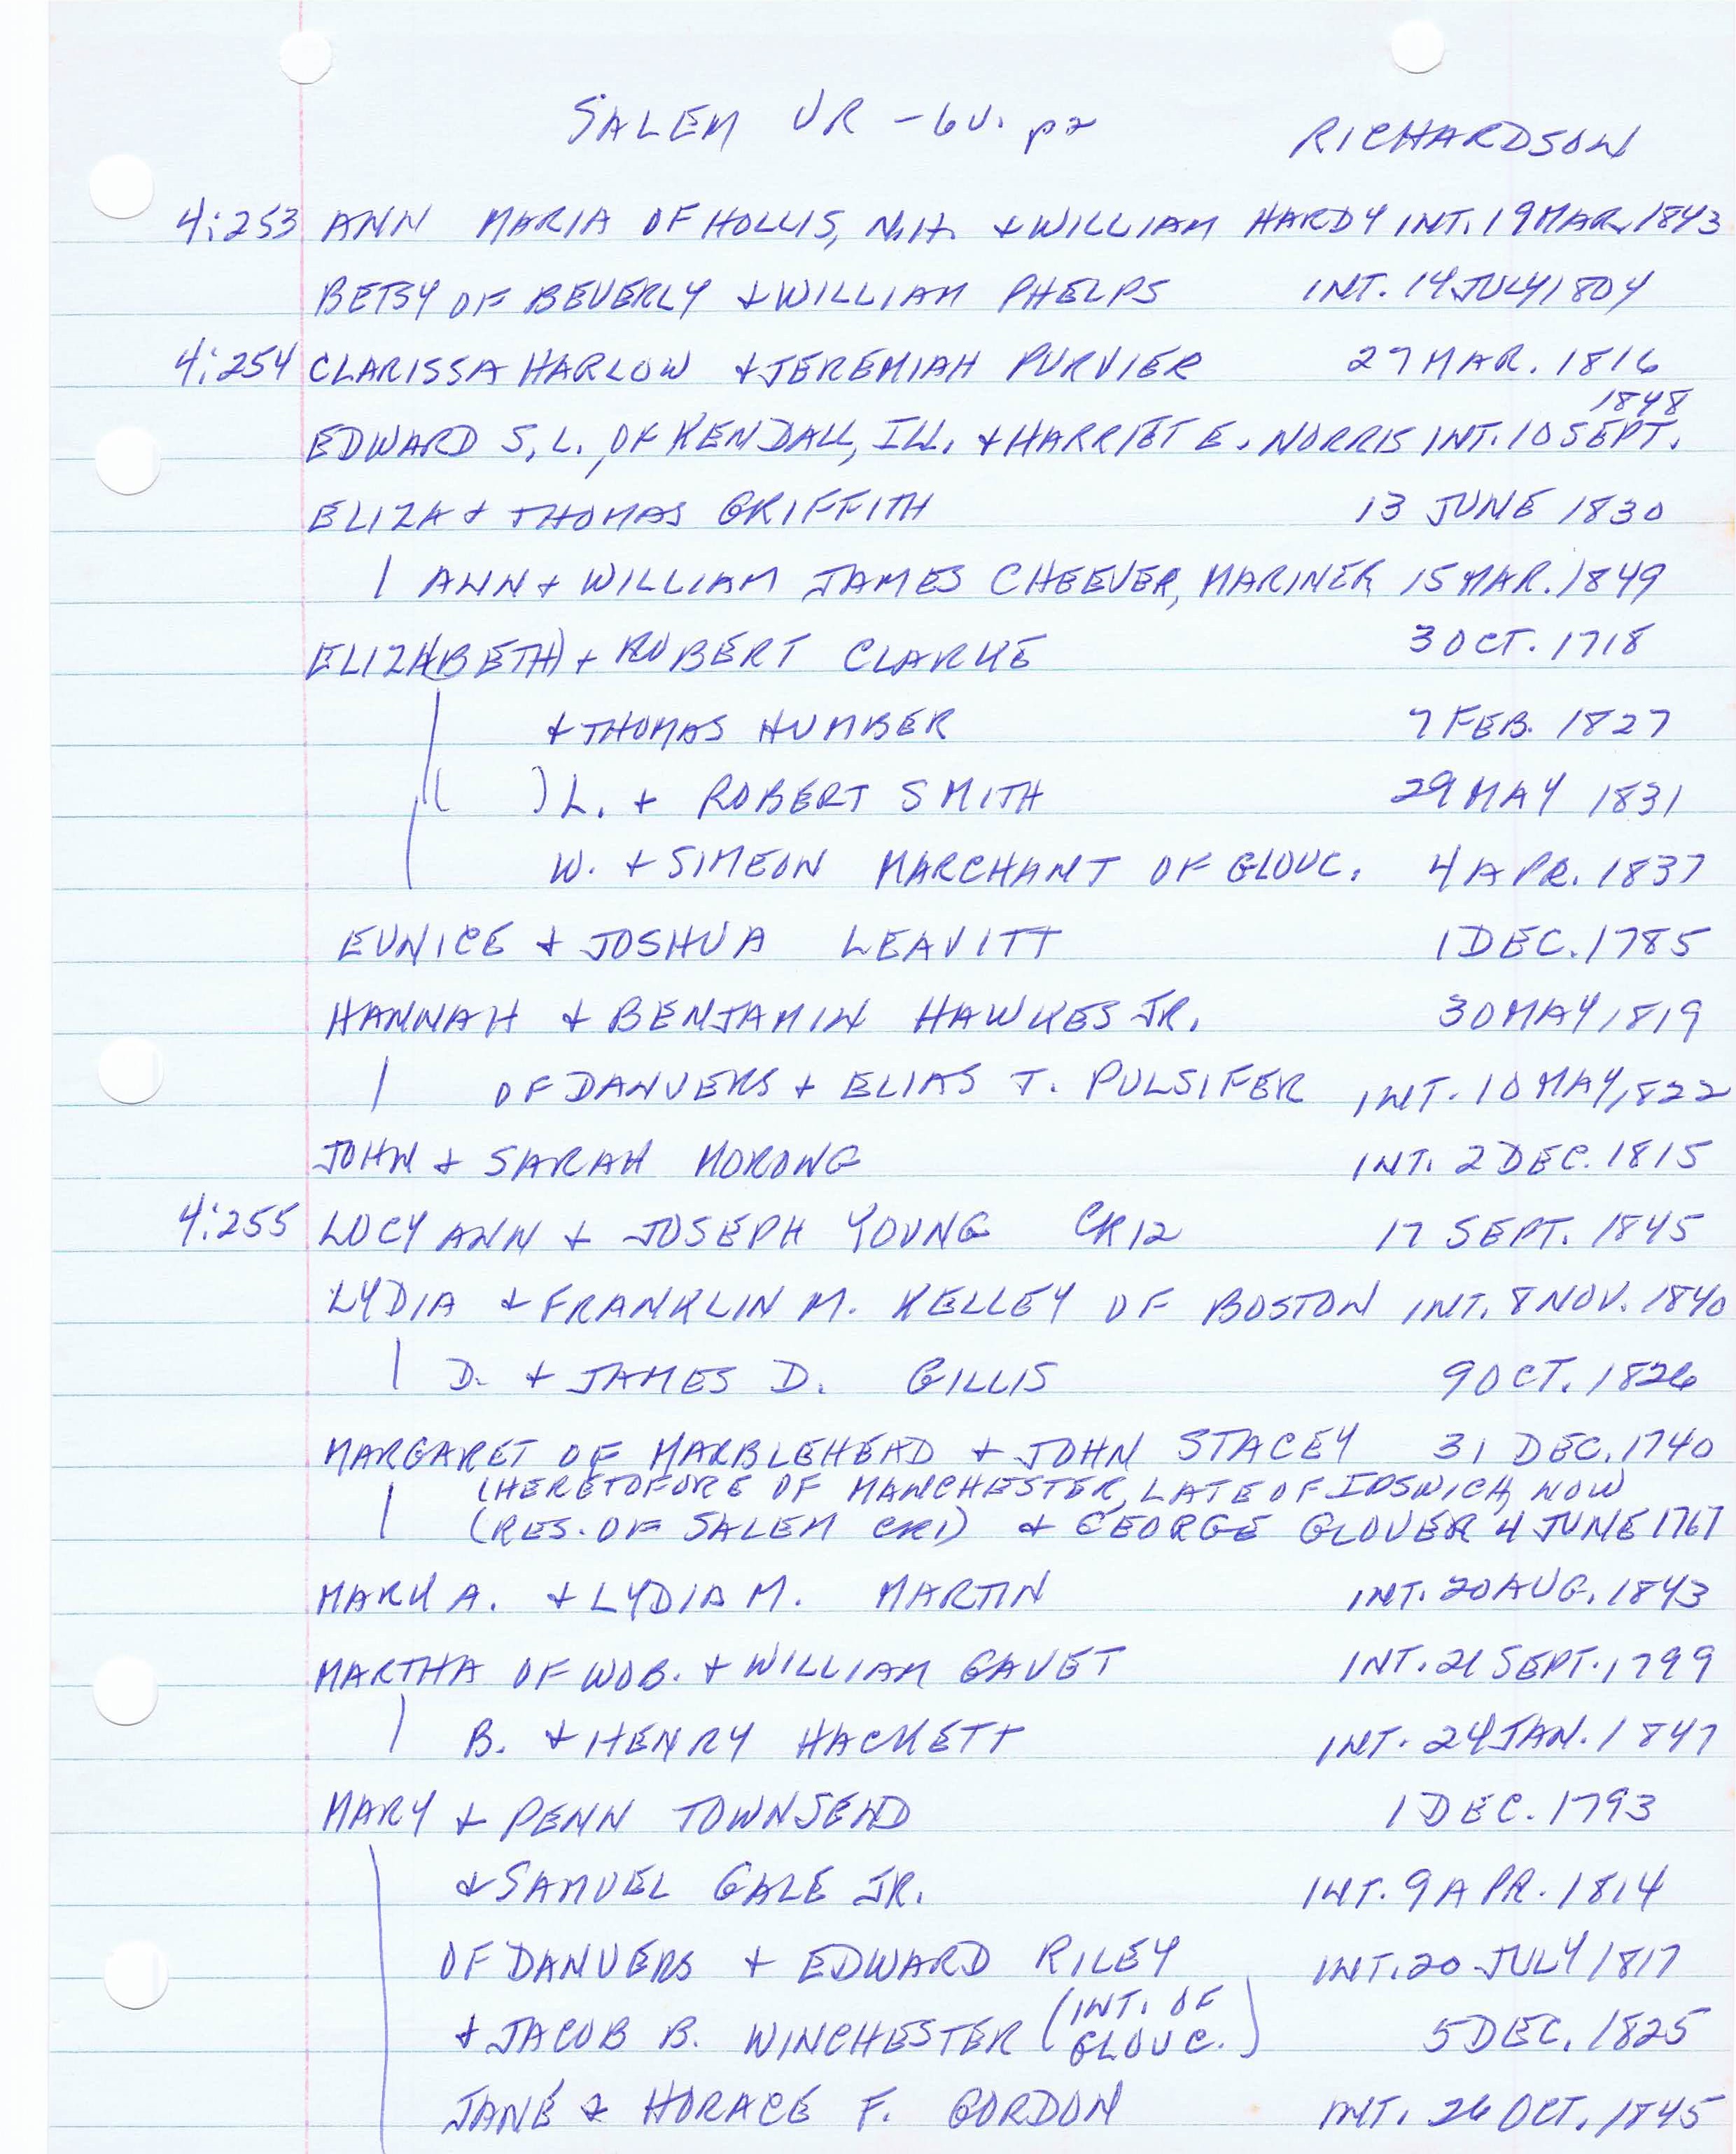 SALEM VR - 6V. p2 RICHARDSON
4:253 ANN MARIA OF HOLLIS, N.H. & WILLIAM HARDY INT. 19 MAR. 1843
BETSY OF BEVERLY & WILLIAM PHELPS INT. 14 JULY 1804
4:254 CLARISSA HARLOW & JEREMIAH PURVIER 27 MAR. 1816
1848
EDWARD S. L., OF KENDALL, ILL. & HARRIET E. NORRIS INT. 10 SEPT.
ELIZA & THOMAS GRIFFITH 13 JUNE 1830
| ANN & WILLIAM JAMES CHEEVER, MARINER 15 MAR. 1849
ELIZA(BETH) & ROBERT CLARKE 3 OCT. 1718
& THOMAS HUMBER 7 FEB. 1827
( ) L. & ROBERT SMITH 29 MAY 1831
W. & SIMEON MARCHANT OF GLOUC. 4 APR. 1837
EUNICE & JOSHUA LEAVITT 1 DEC. 1785
HANNAH & BENJAMIN HAWKES JR. 30 MAY 1819
| OF DANVERS & ELIAS T. PULSIFER INT. 10 MAY 1822
JOHN & SARAH MORONG INT. 2 DEC. 1815
4:255 LUCY ANN & JOSEPH YOUNG CR12 17 SEPT. 1845
LYDIA & FRANKLIN M. KELLEY OF BOSTON INT. 8 NOV. 1840
| D. & JAMES D. GILLIS 9 OCT. 1826
MARGARET OF MARBLEHEAD & JOHN STACEY 31 DEC. 1740
(HERETOFORE OF MANCHESTER, LATE OF IPSWICH, NOW
| (RES. OF SALEM CR1) & GEORGE GLOVER 4 JUNE 1767
MARK A. & LYDIA M. MARTIN INT. 20 AUG. 1843
MARTHA OF WOB. & WILLIAM GAVET INT. 21 SEPT. 1799
| B. & HENRY HACKETT INT. 24 JAN. 1847
MARY & PENN TOWNSEND 1 DEC. 1793
& SAMUEL GALE JR. INT. 9 APR. 1814
OF DANVERS & EDWARD RILEY INT. 20 JULY 1817
& JACOB B. WINCHESTER (INT. OF GLOUC.) 5 DEC. 1825
JANE & HORACE F. GORDON INT. 26 OCT. 1845